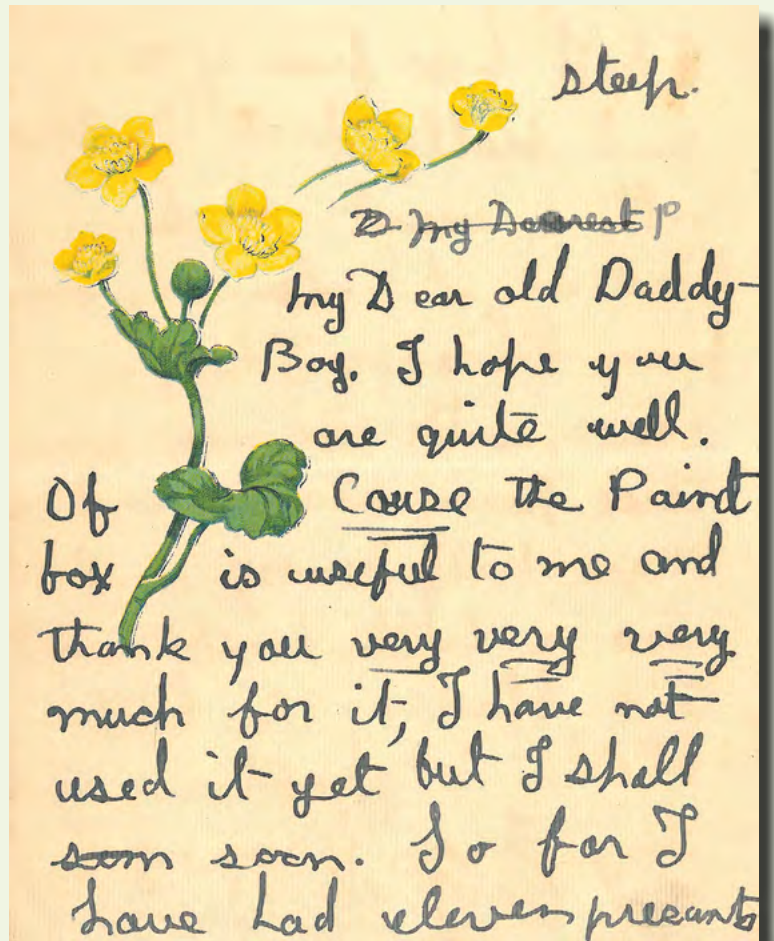 Steep.
D My Dearest P
My Dear old Daddy-
Boy. I hope you
are quite well.
Of Couse the Paint
box is useful to me and
thank you very very very
much for it, I have not
used it yet but I shall
soon soon. So far I
have had eleven presants